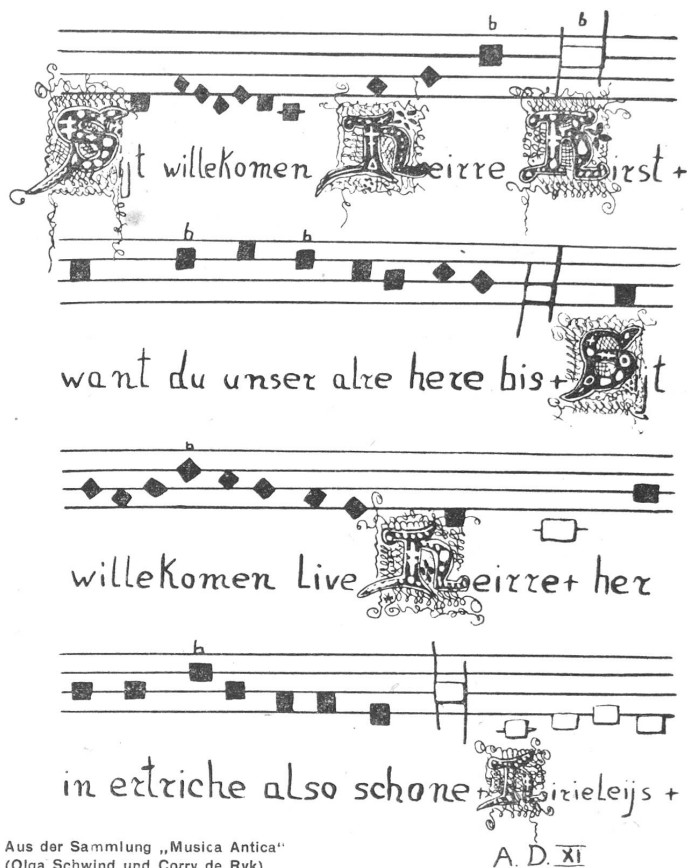 Sijt willekomen heirre kirst +
want du unser alre here bis + Sijt
willekomen live heirre + her
in ertriche also schone + kirieleijs +
Aus der Sammlung „Musica Antica“
(Olga Schwind und Corry de Ryk)
A. D. XI